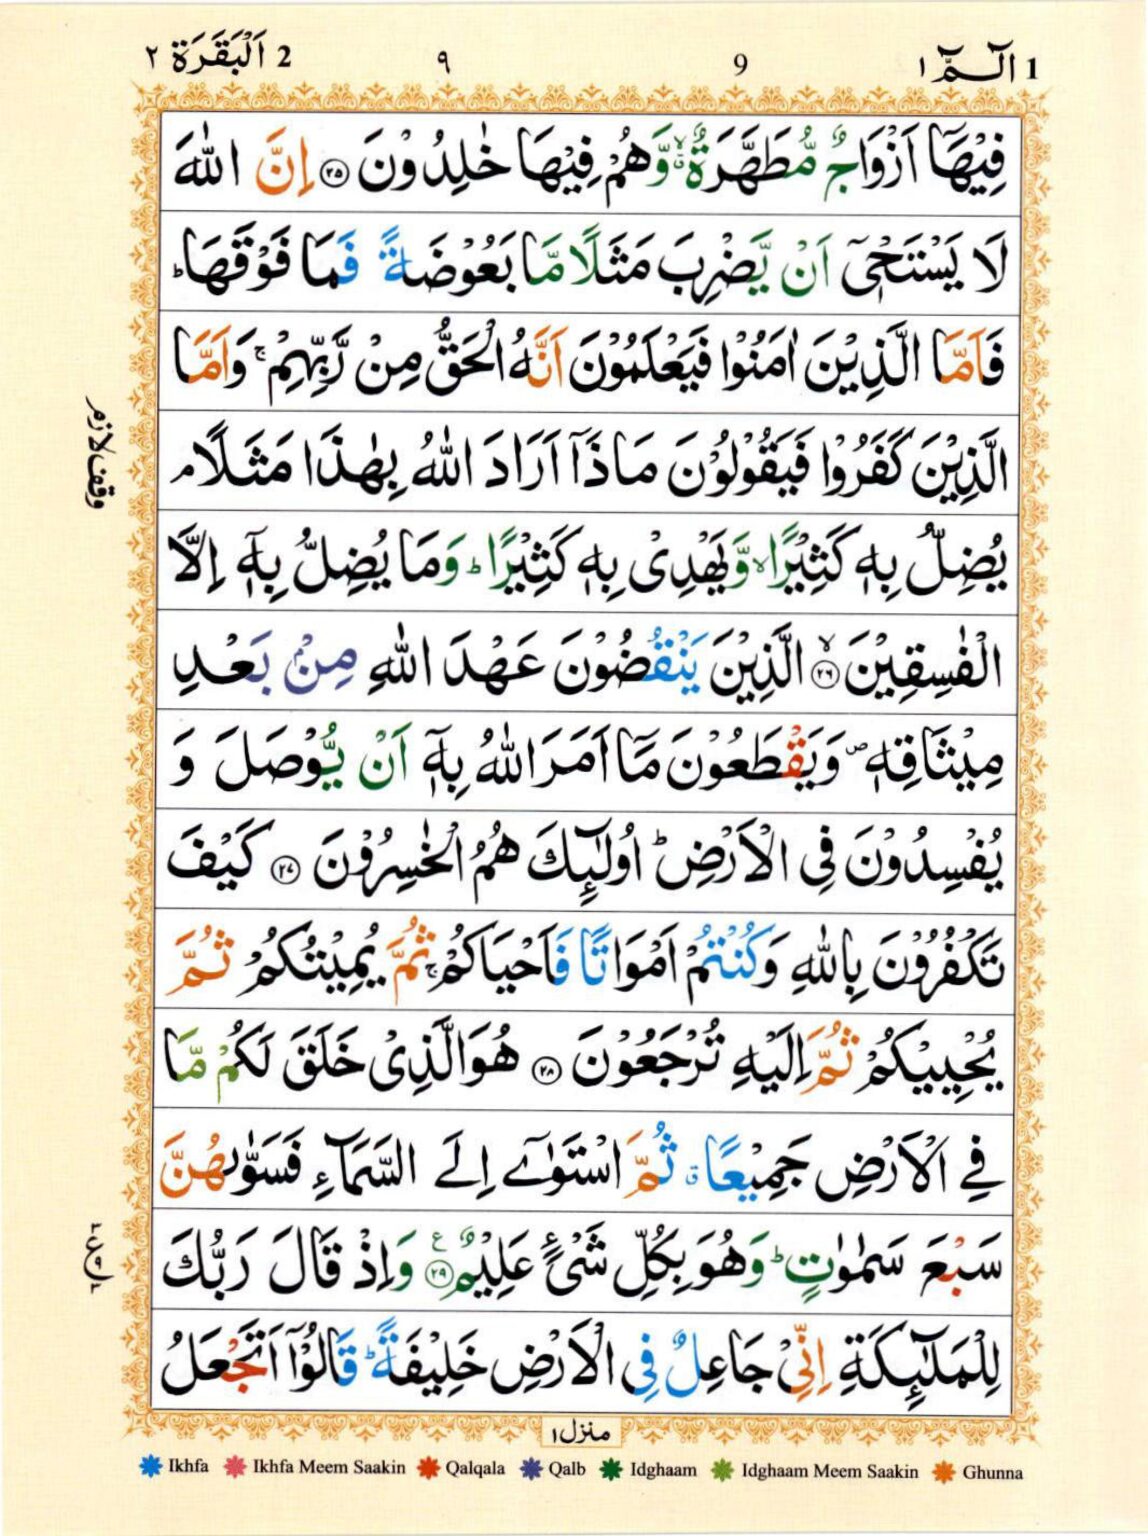 1 الٓـمّٓ ١ 9 ٩ 2 اَلْبَقَرَة ٢
فِيْهَاۤ اَزْوَاجٌ مُّطَهَّرَةٌ ۙۗ وَّهُمْ فِيْهَا خٰلِدُوْنَ ﴿۲۵﴾ اِنَّ اللّٰهَ
لَا يَسْتَحْيٖۤ اَنْ يَّضْرِبَ مَثَلًا مَّا بَعُوْضَةً فَمَا فَوْقَهَا ؕ
فَاَمَّا الَّذِيْنَ اٰمَنُوْا فَيَعْلَمُوْنَ اَنَّهُ الْحَقُّ مِنْ رَّبِّهِمْ ۚ وَاَمَّا
الَّذِيْنَ كَفَرُوْا فَيَقُوْلُوْنَ مَاذَاۤ اَرَادَ اللّٰهُ بِهٰذَا مَثَلًا ۘ
وقف لازم
يُضِلُّ بِهٖ كَثِيْرًا ۙ وَّيَهْدِىْ بِهٖ كَثِيْرًا ؕ وَمَا يُضِلُّ بِهٖۤ اِلَّا
الْفٰسِقِيْنَ ۙ﴿۲۶﴾ الَّذِيْنَ يَنْقُضُوْنَ عَهْدَ اللّٰهِ مِنْۢ بَعْدِ
مِيْثَاقِهٖ ۪ وَيَقْطَعُوْنَ مَاۤ اَمَرَ اللّٰهُ بِهٖۤ اَنْ يُّوْصَلَ وَ
يُفْسِدُوْنَ فِى الْاَرْضِ ؕ اُولٰٓئِكَ هُمُ الْخٰسِرُوْنَ ﴿۲۷﴾ كَيْفَ
تَكْفُرُوْنَ بِاللّٰهِ وَكُنْتُمْ اَمْوَاتًا فَاَحْيَاكُمْ ۚ ثُمَّ يُمِيْتُكُمْ ثُمَّ
يُحْيِيْكُمْ ثُمَّ اِلَيْهِ تُرْجَعُوْنَ ﴿۲۸﴾ هُوَ الَّذِىْ خَلَقَ لَكُمْ مَّا
فِى الْاَرْضِ جَمِيْعًا ۗ ثُمَّ اسْتَوٰٓى اِلَى السَّمَآءِ فَسَوّٰىهُنَّ
سَبْعَ سَمٰوٰتٍ ؕ وَهُوَ بِكُلِّ شَىْءٍ عَلِيْمٌ ﴿۲۹﴾ۧ وَاِذْ قَالَ رَبُّكَ
لِلْمَلٰٓئِكَةِ اِنِّىْ جَاعِلٌ فِى الْاَرْضِ خَلِيْفَةً ؕ قَالُوْۤا اَتَجْعَلُ
منزل ١
Ikhfa Ikhfa Meem Saakin Qalqala Qalb Idghaam Idghaam Meem Saakin Ghunna